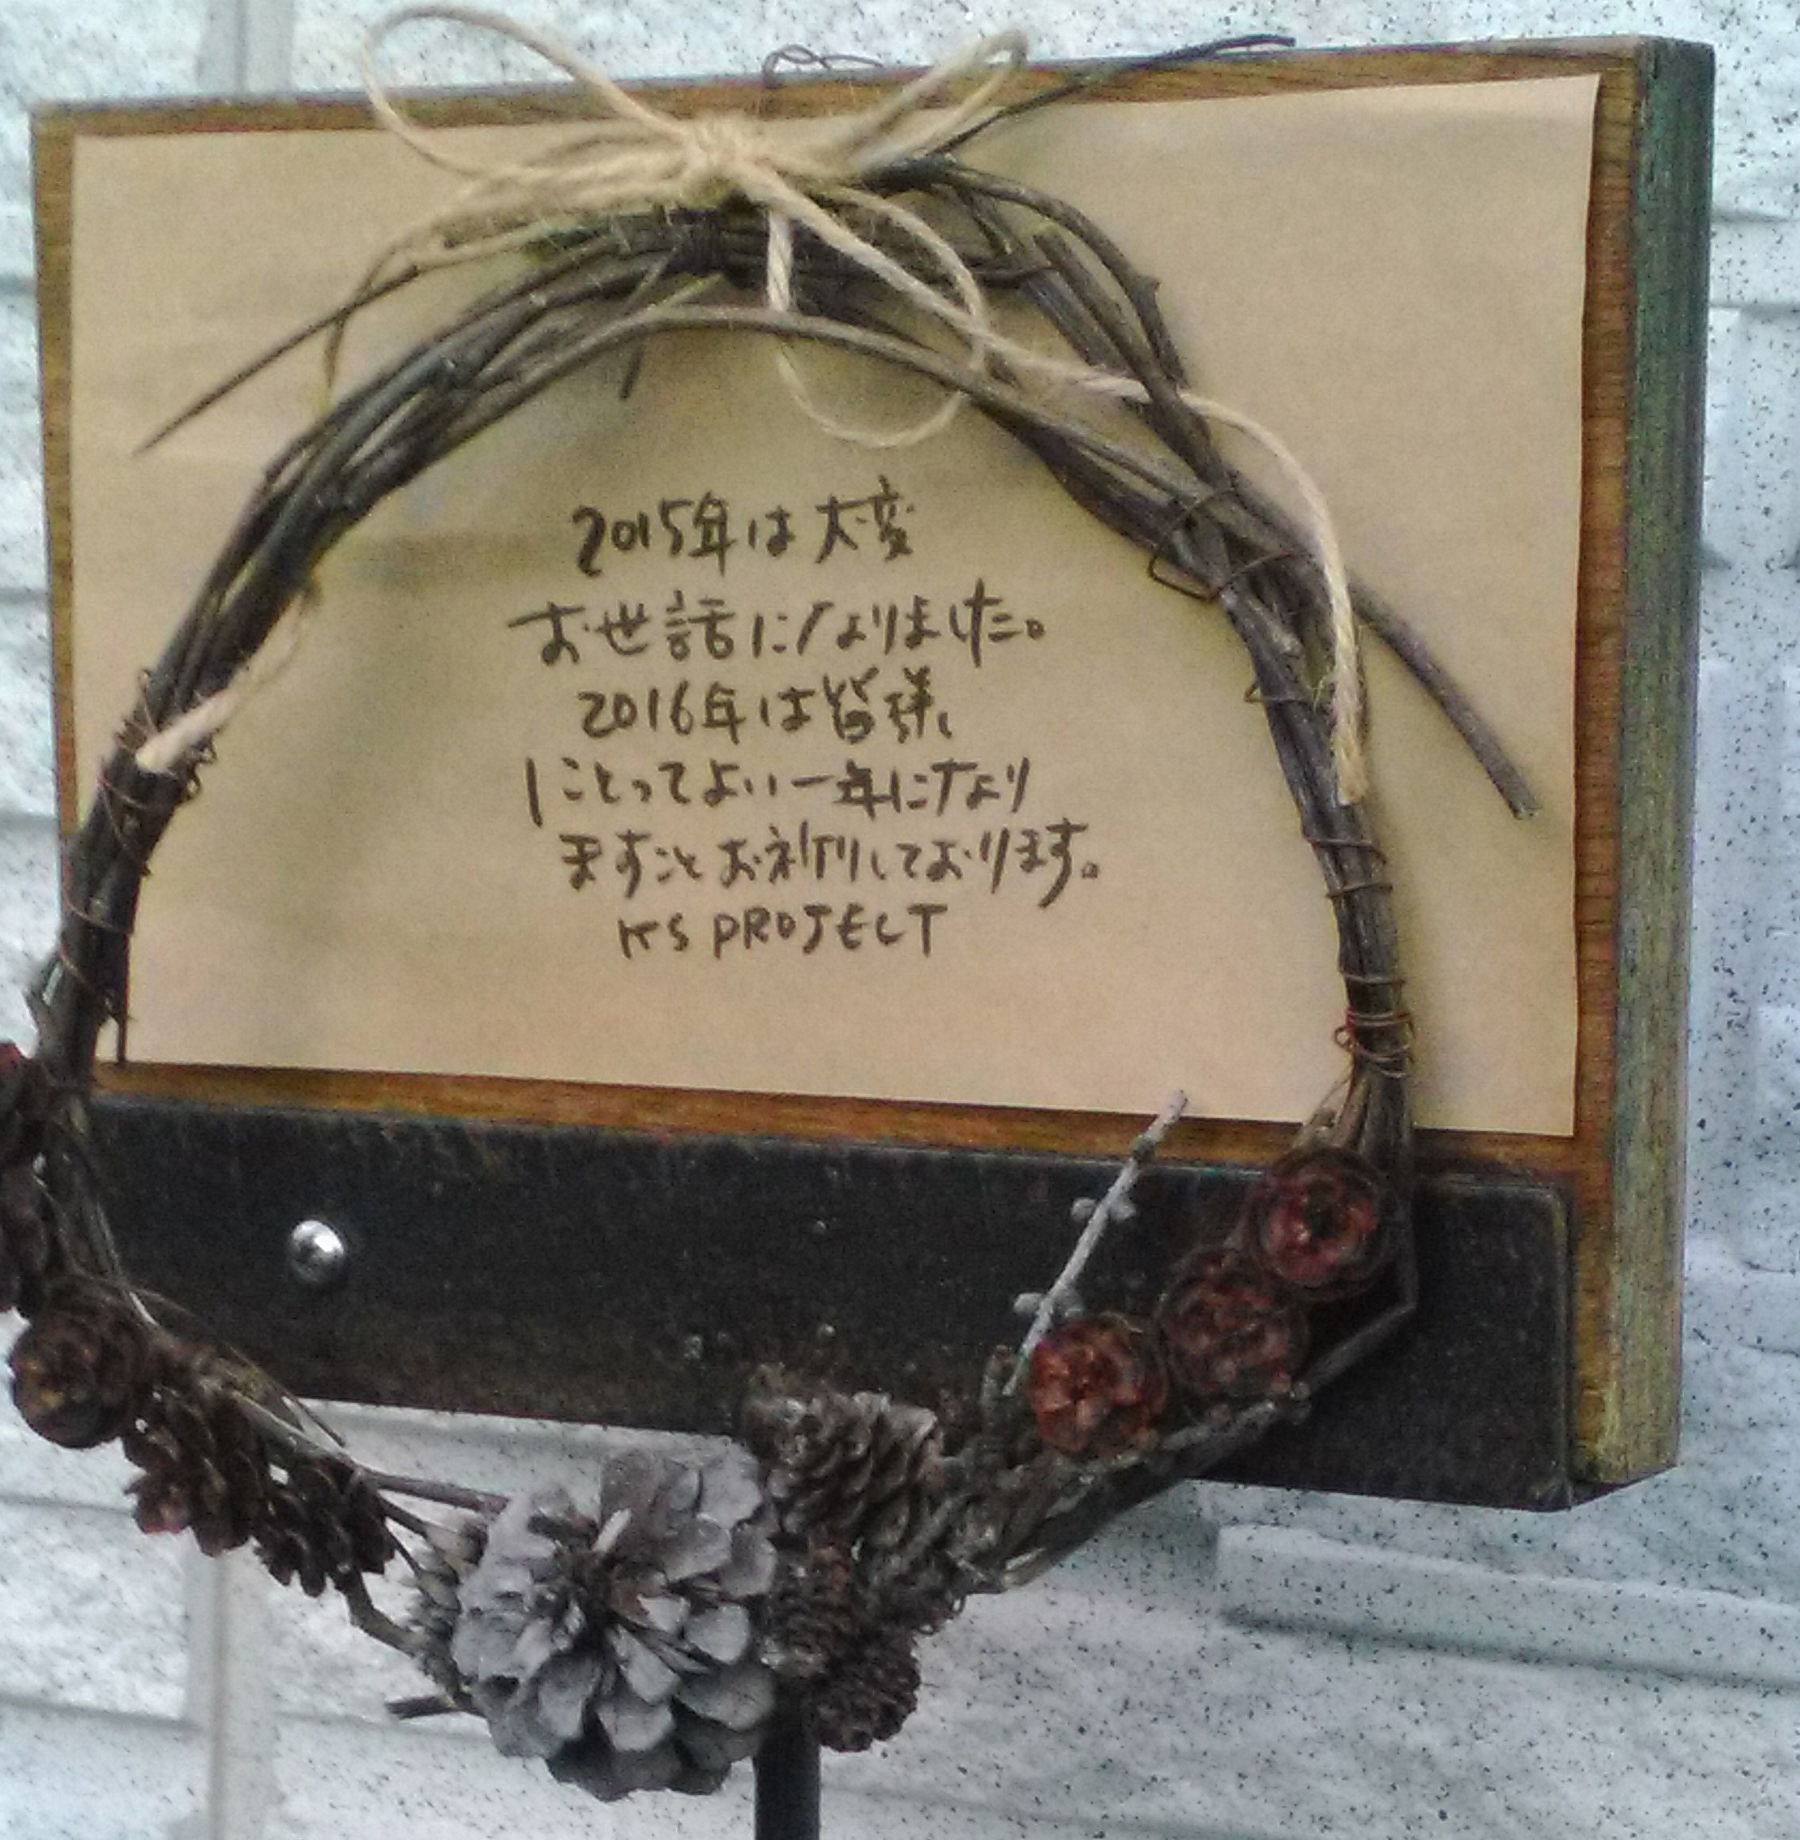 2015年は大変
お世話になりました。
2016年は皆様
にとってよい一年になり
ますことお祈りしております。
KS PROJECT